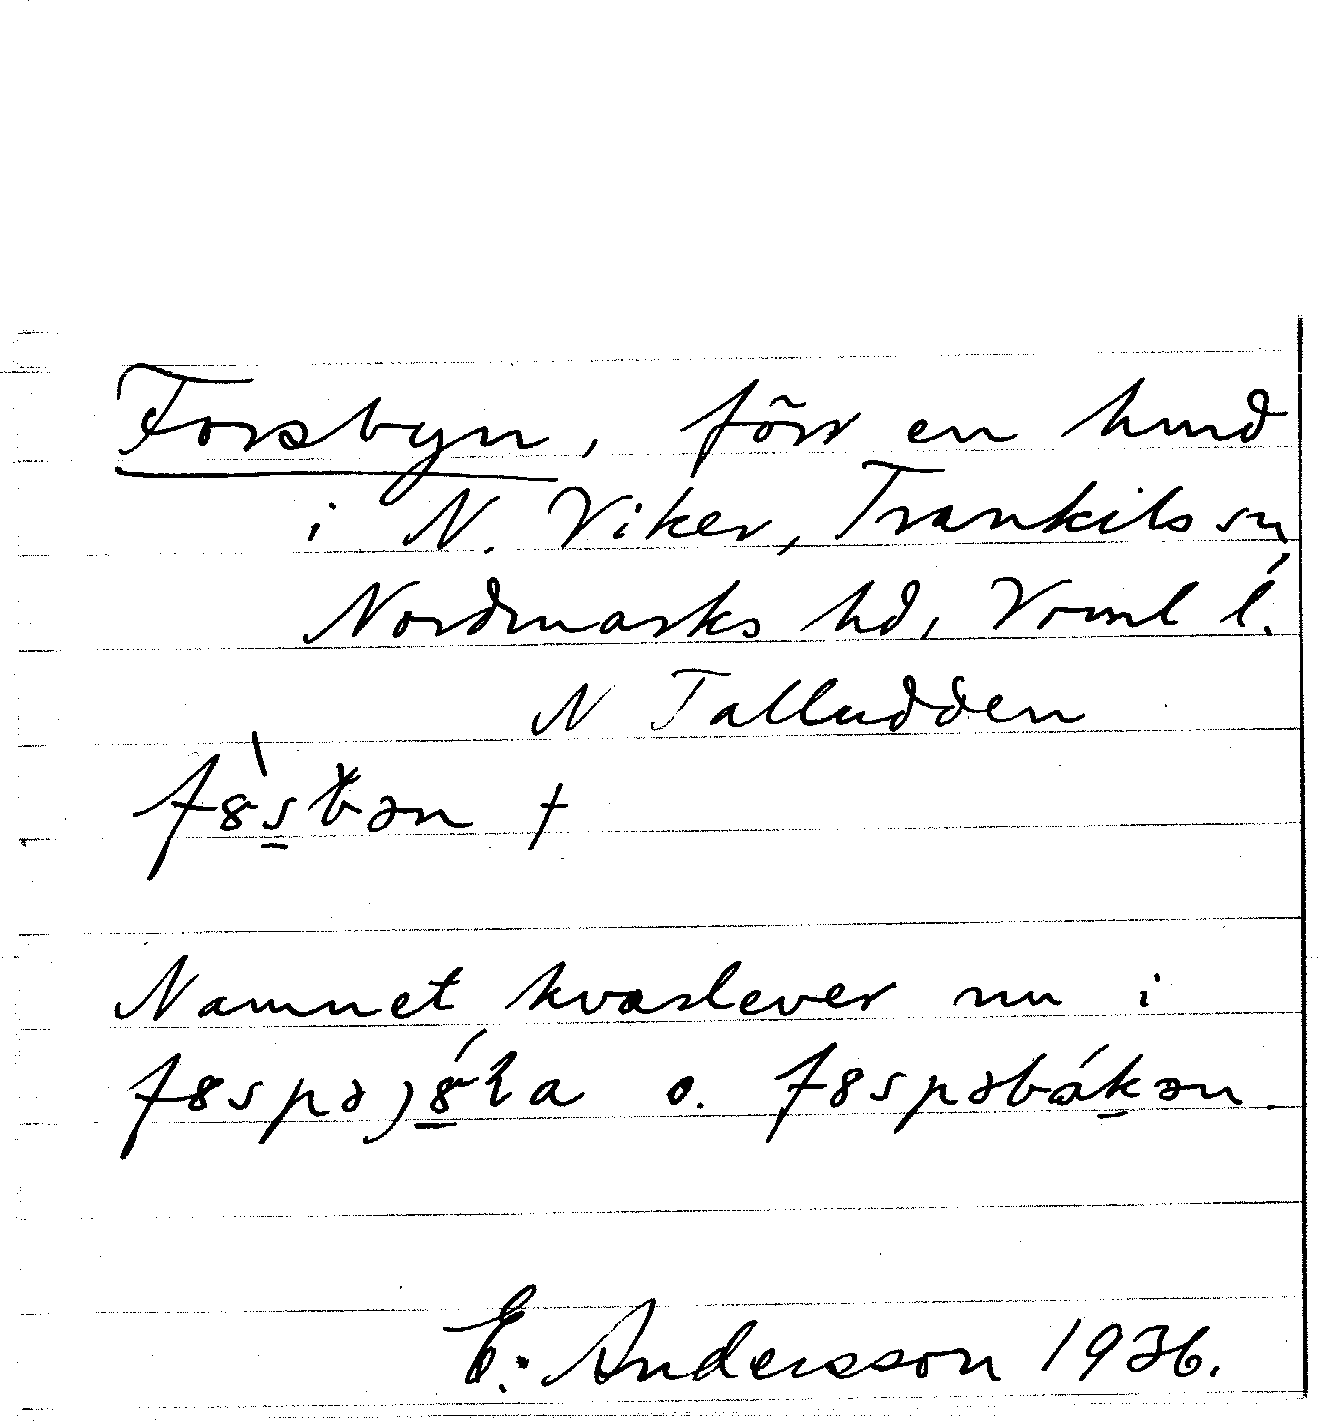 Forsbyn, förr en hmd
i N. Viker, Trankils sn,
Nordmarks hd, Vrml l.
N Talludden
Namnet kvarlever nu i
o.
E. Andersson 1936.